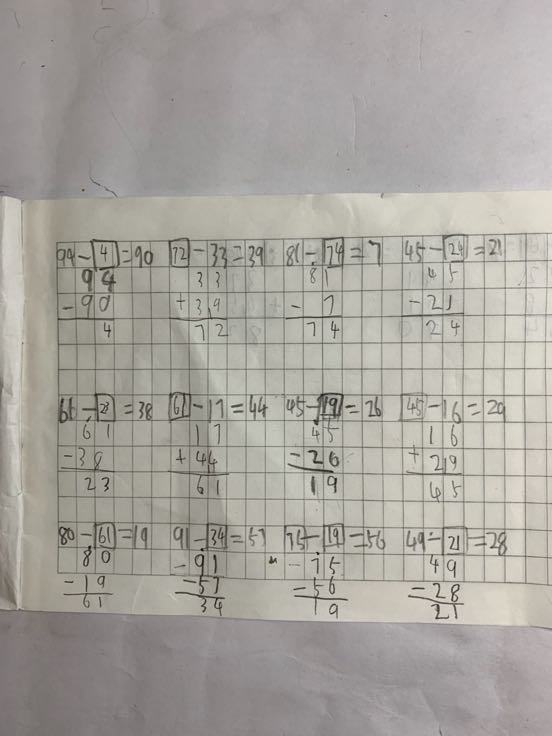 94-4=90 72-33=39 81-74=7 45-24=21
94 33 81 45
-90 +39 -7 -21
4 72 74 24
61-23=38 61-17=44 45-19=26 45-16=29
61 17 45 16
-38 +44 -26 +29
23 61 19 45
80-61=19 91-34=57 75-19=56 49-21=28
80 -91 -75 49
-19 -57 =56 =28
61 34 19 21